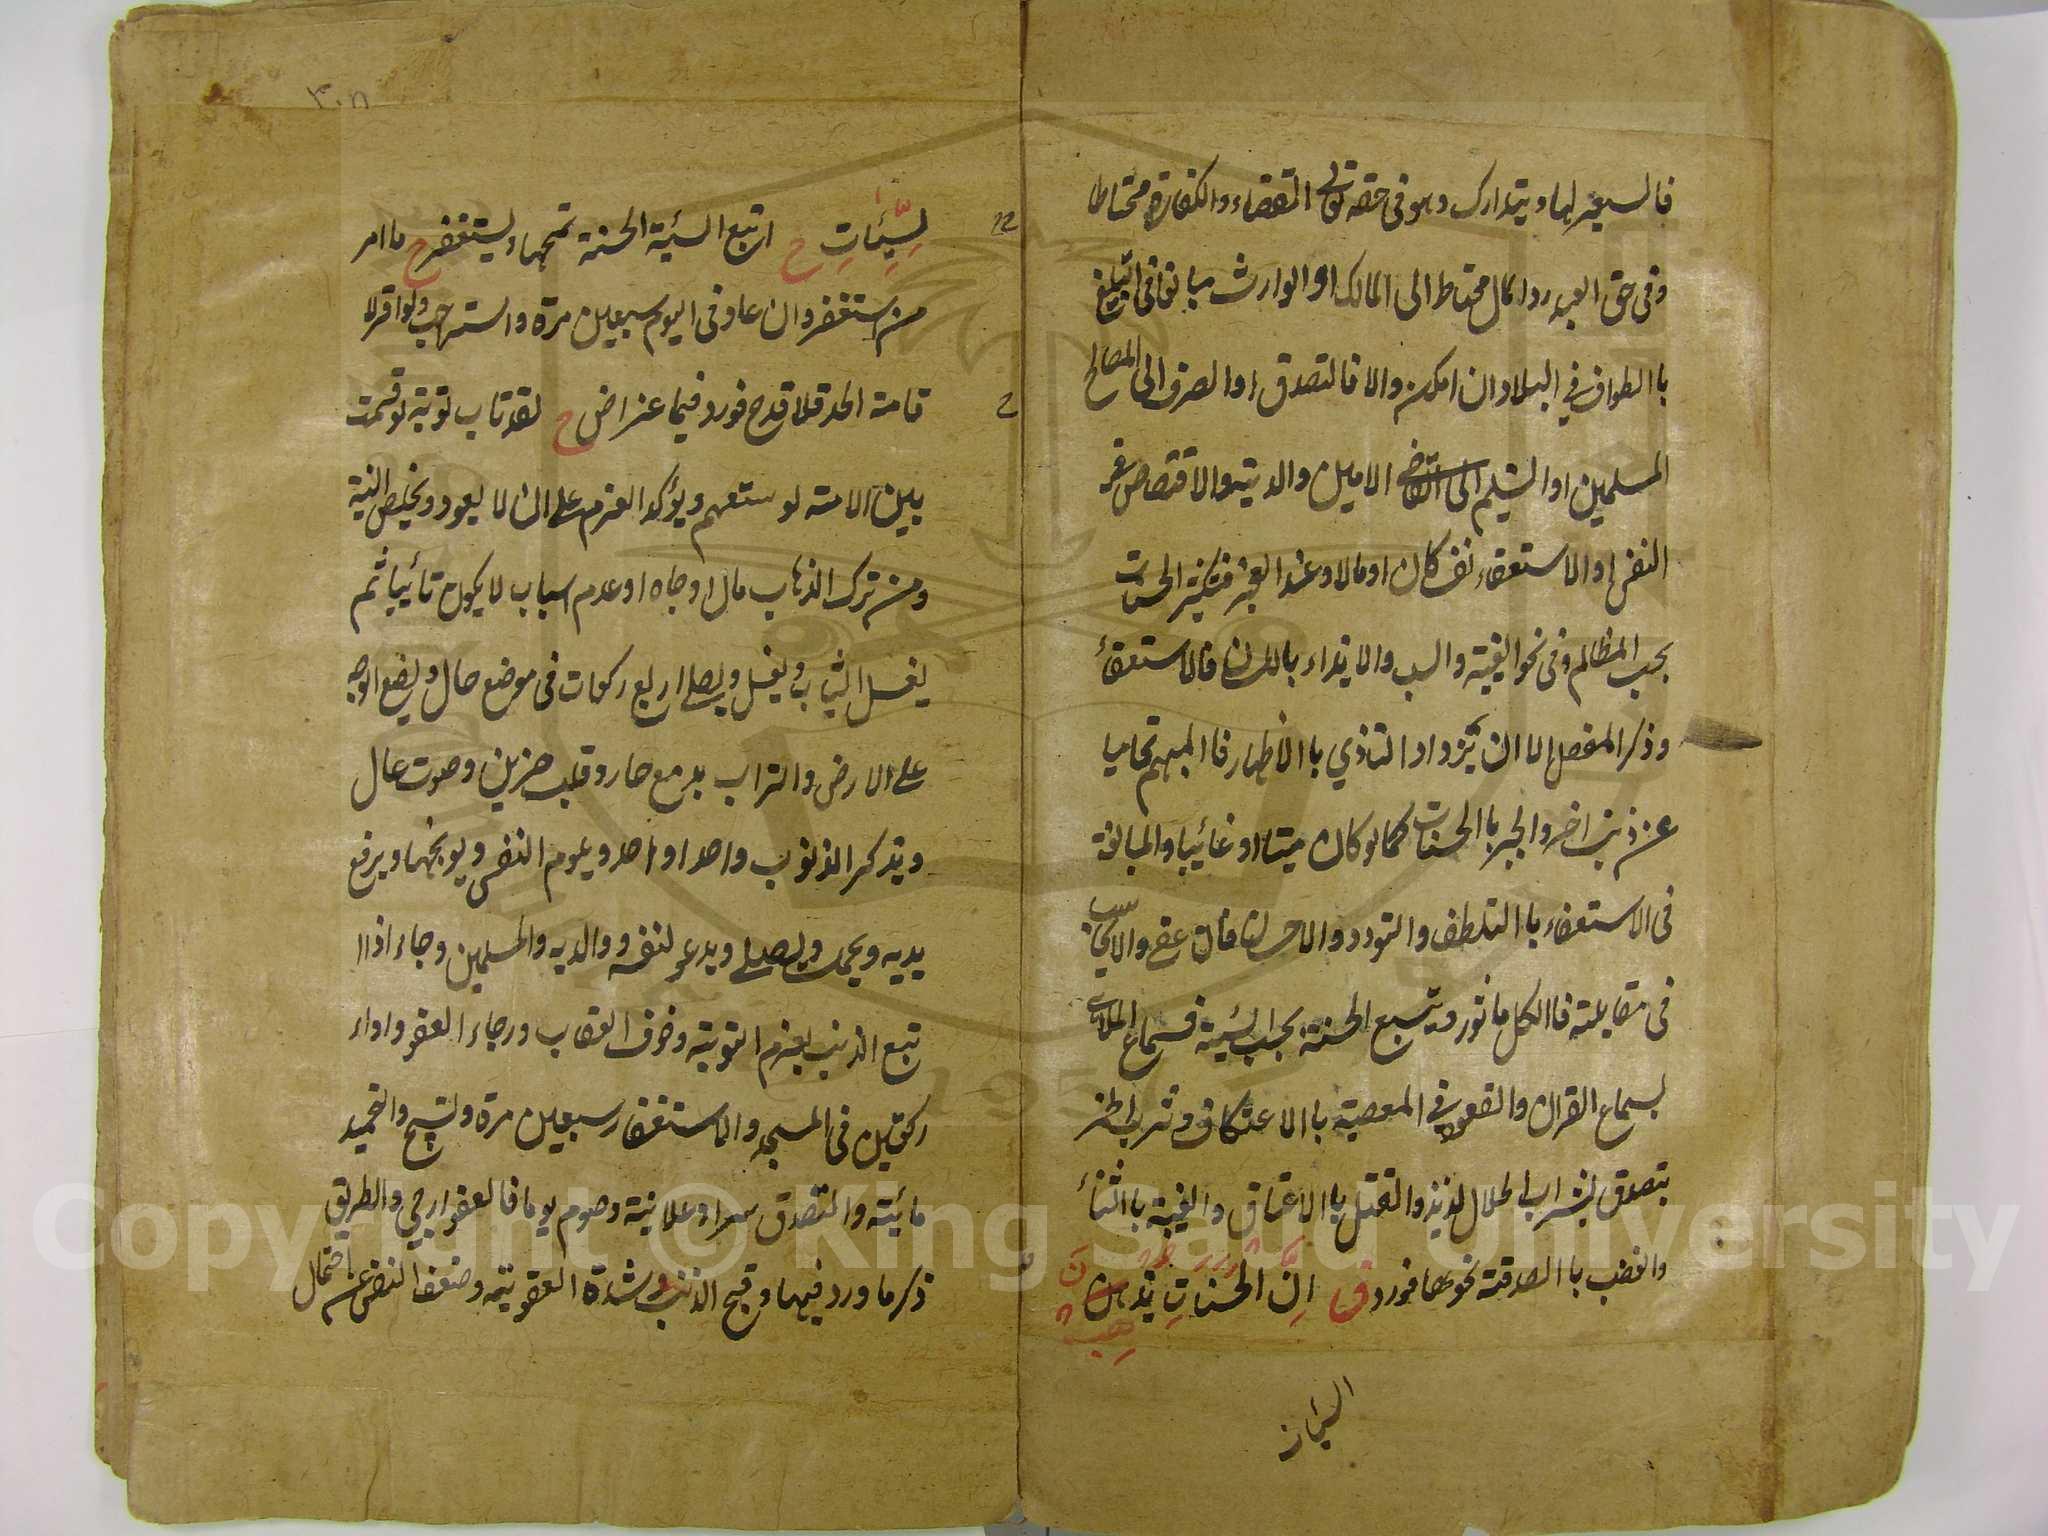 فالسعير لها ويتدارك وهو في حقه تعالى القضاء والكفارة محتاطا
وفي حق العبد رد المال محتاط الى المالك او الوارث مبالغا في التبليغ
باالطواف في البلاد ان امكن والا فالتصدق او الصرف الى المصالح
المسلمين او التسليم الى القاضي الامين والدية والاقتصاص في
النفس او الاستعفاء نفسا كان او مالا وعند العجز فتكثير الحسنات
بحسب المظالم وفي نحو الغيبة والسب والايذاء باللسان فالاستعفاء
وذكر المفصل الا ان يزداد التاذي باالاظهار فاالمبهم تحاميا
عن ذنب اخر والجبر باالحسنات كما لو كان ميتا او غائبا والمبالغة
في الاستعفاء باالتلطف والتودد والاحسان فان عفي والا يحاسب
في مقابلته فاالكل ماثور ويتبع الحسنة بحسب السيئة فسماع الملاهي
بسماع القران والقعود في المعصية باالاعتكاف وشرب الخمر
بتصدق بشراب الحلال لذيذ والقتل باالاعتاق والغيبة باالثناء
والغضب باالصدقة نحوها فورد ق اِنَّ الحسناتِ يذهبن
السيئات
٣٠٨
لسَّيِّئاتِ ح اتبع السيئة الحسنة تمحها ويستغفر ح ما امر
من استغفر وان عاد في اليوم سبعين مرة واستر حب ولو اقر لا
قامة الحد فلا قدح فورد فيما عز اض ح لقد تاب توبة لو قسمت
بين الامة لوسعتهم ويؤكد العزم على ان لا يعود ويخلص النية
ومن ترك الذهاب مال او جاه او عدم اسباب لا يكون تائبا ثم
يغسل الثياب ويغسل ويصلي اربع ركعات في موضع خال ويضع الوجه
على الارض والتراب بدمع حار وقلب حزين وصوت عال
ويتذكر الذنوب واحدا واحدا ويلوم النفس ويوبخها ويرفع
يديه ويحمد ويصلي ويدعو لنفسه ووالديه والمسلمين وجاء اذا ا
تبع الذنب بعزم التوبة وخوف العقاب ورجاء العفو واداء
ركعتين في المسجد والاستغفار سبعين مرة وتسبيح والتحميد
مائة والتصدق سرا وعلانية وصوم يوما فالعفو ارجي والطريق
ذكر ما ورد فيها وقبح الذنب وشدة العقوبة وضعف النفس عن احتمال